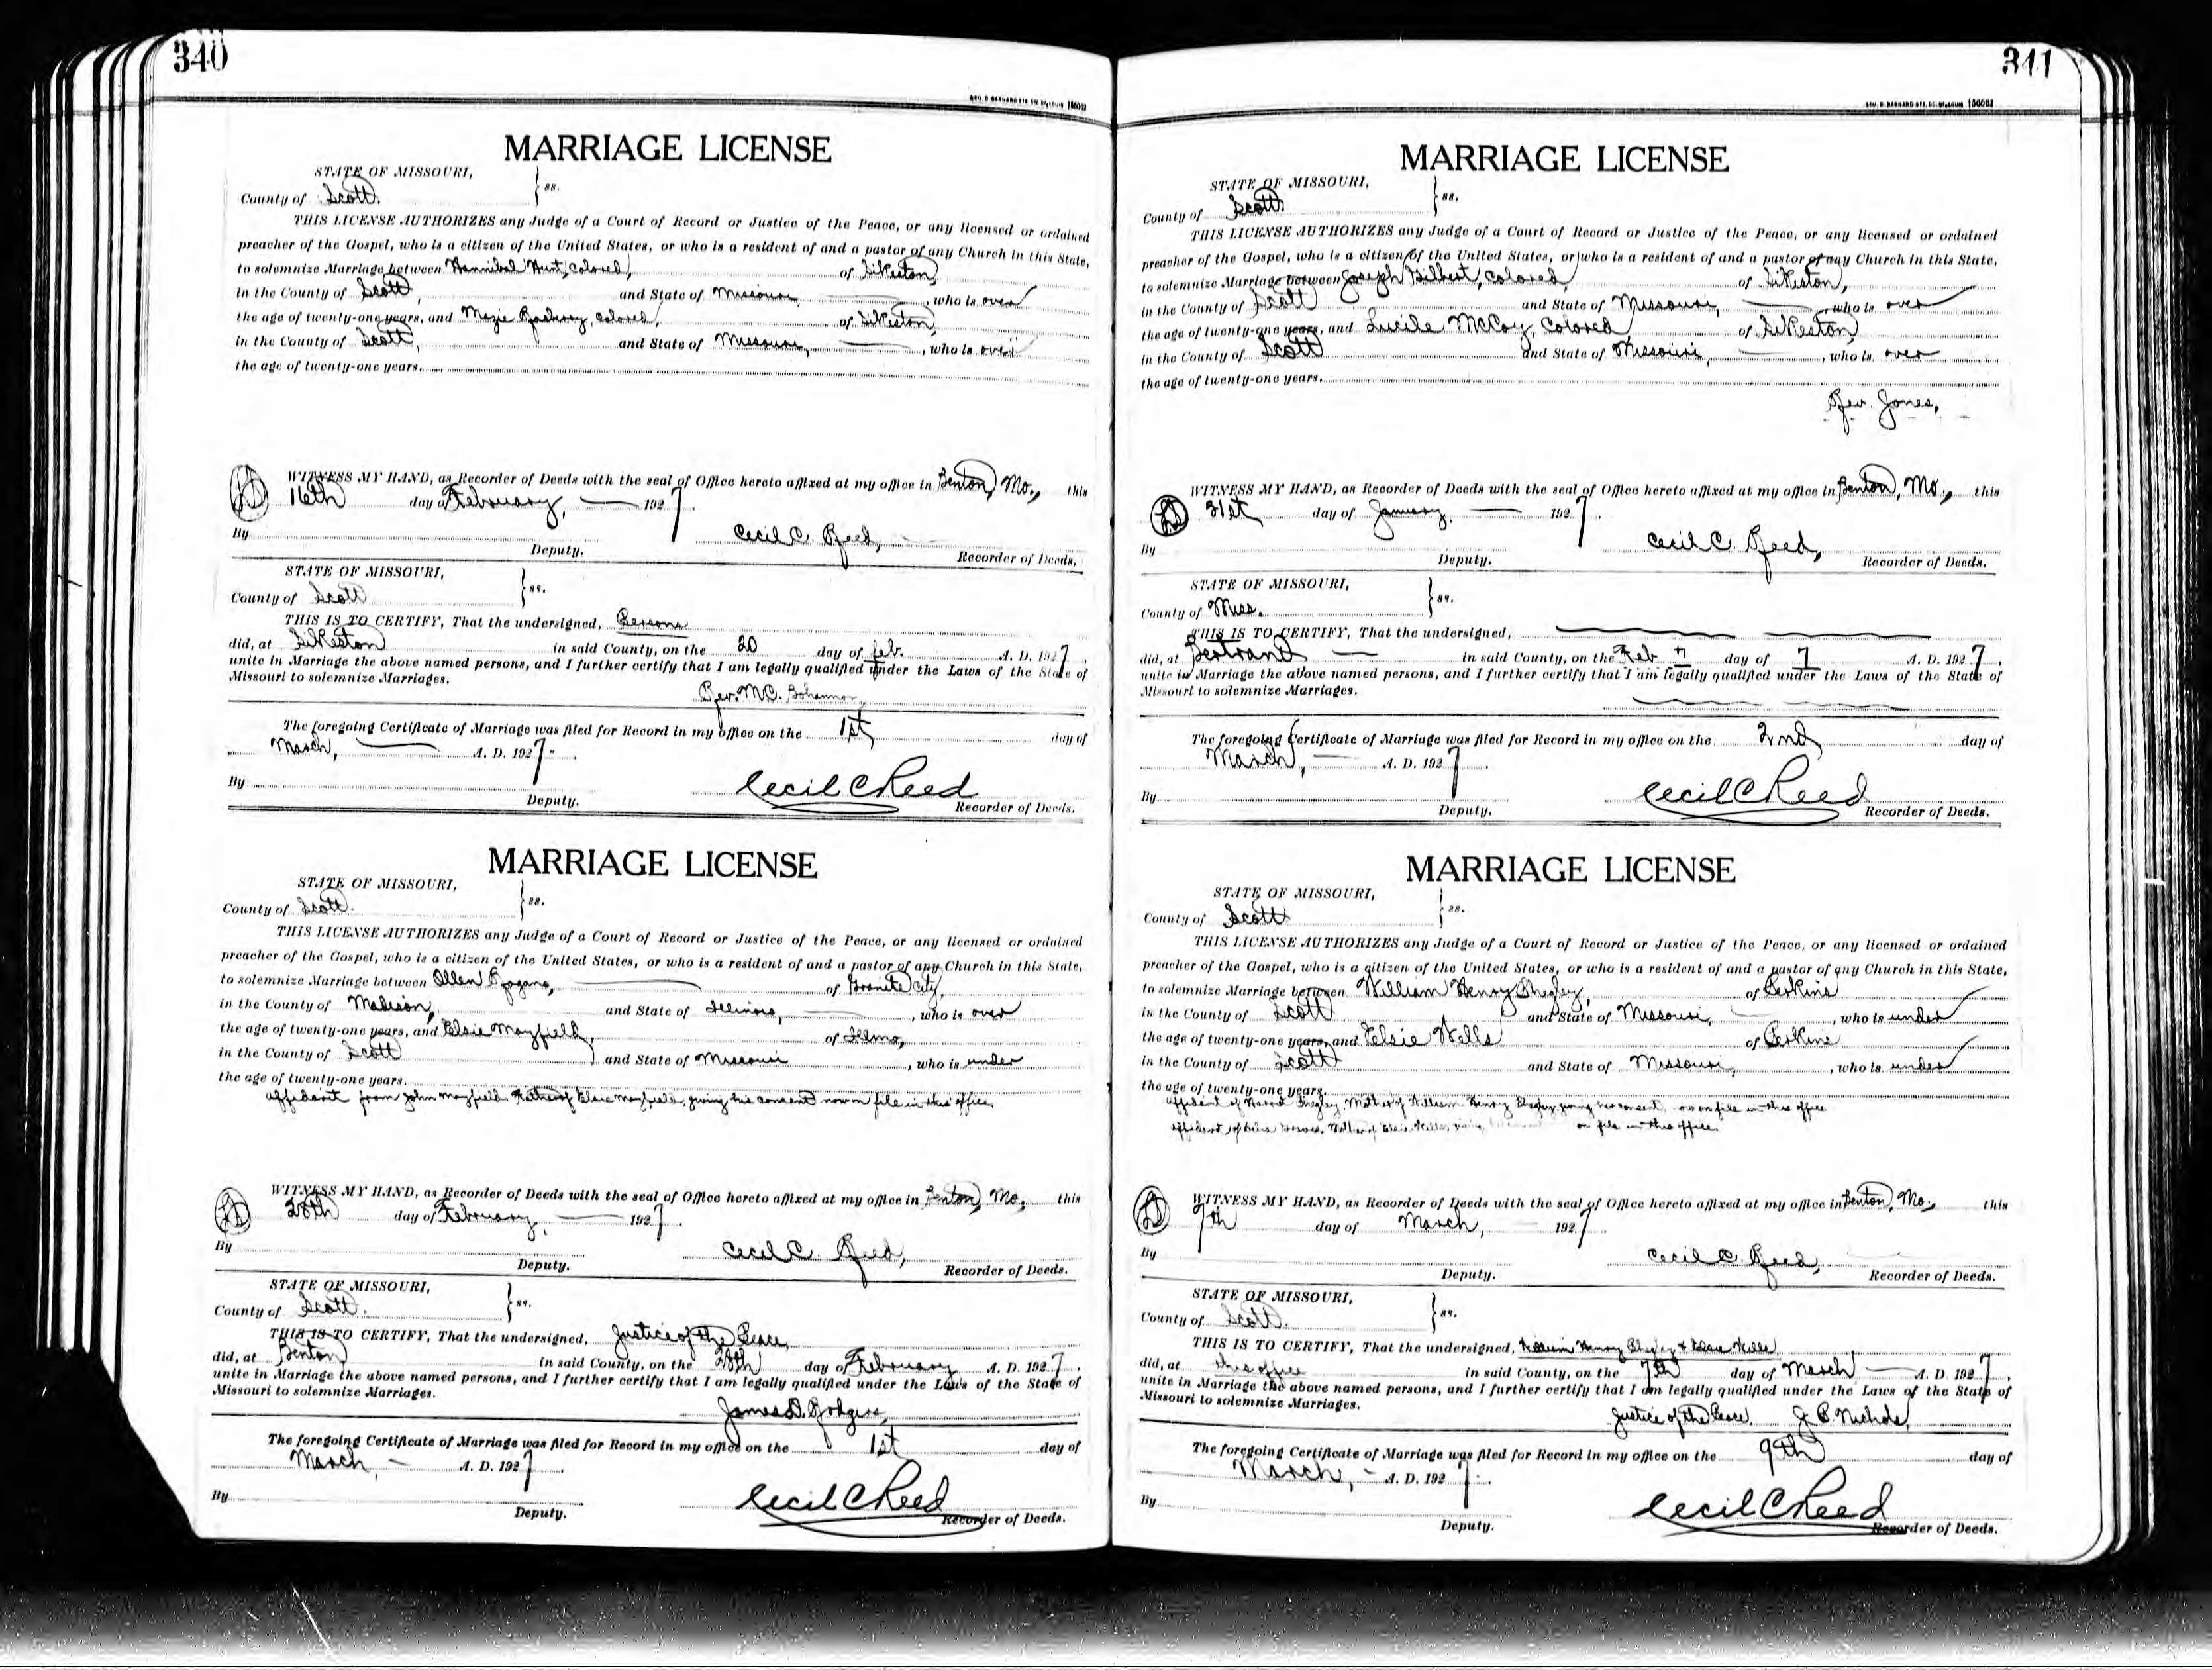 340
GEO. D. BARNARD STA. CO. ST. LOUIS 136063
MARRIAGE LICENSE
STATE OF MISSOURI,
County of Scott. } ss.
THIS LICENSE AUTHORIZES any Judge of a Court of Record or Justice of the Peace, or any licensed or ordained
preacher of the Gospel, who is a citizen of the United States, or who is a resident of and a pastor of any Church in this State,
to solemnize Marriage between Hannibal Hunt, colored, of Sikeston,
in the County of Scott, and State of Missouri, who is over
the age of twenty-one years, and Mazie colored, of Sikeston,
in the County of Scott, and State of Missouri, who is over
the age of twenty-one years.
WITNESS MY HAND, as Recorder of Deeds with the seal of Office hereto affixed at my office in Benton, Mo., this
16th day of February, 1927.
Cecil C. Reed,
By Deputy. Recorder of Deeds.
STATE OF MISSOURI,
County of Scott } ss.
THIS IS TO CERTIFY, That the undersigned, Persons
did, at Sikeston in said County, on the 20 day of feb. A. D. 1927,
unite in Marriage the above named persons, and I further certify that I am legally qualified under the Laws of the State of
Missouri to solemnize Marriages.
Rev. M.C. Bohannon
The foregoing Certificate of Marriage was filed for Record in my office on the 1st day of
March, A. D. 1927.
By Cecil C Reed
Deputy. Recorder of Deeds.
MARRIAGE LICENSE
STATE OF MISSOURI,
County of Scott. } ss.
THIS LICENSE AUTHORIZES any Judge of a Court of Record or Justice of the Peace, or any licensed or ordained
preacher of the Gospel, who is a citizen of the United States, or who is a resident of and a pastor of any Church in this State,
to solemnize Marriage between Ollen Ragans, of Granite City,
in the County of Madison, and State of Illinois, who is over
the age of twenty-one years, and Elsie Mayfield, of Illmo,
in the County of Scott and State of Missouri, who is under
the age of twenty-one years.
affidavit from John Mayfield, Father of Elsie Mayfield, giving his consent now on file in this office.
WITNESS MY HAND, as Recorder of Deeds with the seal of Office hereto affixed at my office in Benton, Mo., this
28th day of February, 1927.
By Cecil C. Reed,
Deputy. Recorder of Deeds.
STATE OF MISSOURI,
County of Scott. } ss.
THIS IS TO CERTIFY, That the undersigned, Justice of the Peace,
did, at Benton in said County, on the 28th day of February A. D. 1927,
unite in Marriage the above named persons, and I further certify that I am legally qualified under the Laws of the State of
Missouri to solemnize Marriages.
James D. Rodgers,
The foregoing Certificate of Marriage was filed for Record in my office on the 1st day of
March, A. D. 1927.
By Cecil C Reed
Deputy. Recorder of Deeds.
341
GEO. D. BARNARD STA. CO. ST. LOUIS 136063
MARRIAGE LICENSE
STATE OF MISSOURI,
County of Scott. } ss.
THIS LICENSE AUTHORIZES any Judge of a Court of Record or Justice of the Peace, or any licensed or ordained
preacher of the Gospel, who is a citizen of the United States, or who is a resident of and a pastor of any Church in this State,
to solemnize Marriage between Joseph Gilbert, colored, of Sikeston,
in the County of Scott and State of Missouri, who is over
the age of twenty-one years, and Lucile McCoy, colored of Sikeston,
in the County of Scott and State of Missouri, who is over
the age of twenty-one years.
Rev. Jones,
WITNESS MY HAND, as Recorder of Deeds with the seal of Office hereto affixed at my office in Benton, Mo., this
31st day of January, 1927.
Cecil C. Reed,
By Deputy. Recorder of Deeds.
STATE OF MISSOURI,
County of Miss. } ss.
THIS IS TO CERTIFY, That the undersigned,
did, at Bertrand in said County, on the Feb 7 day of 7 A. D. 1927,
unite in Marriage the above named persons, and I further certify that I am legally qualified under the Laws of the State of
Missouri to solemnize Marriages.
The foregoing Certificate of Marriage was filed for Record in my office on the 2nd day of
March, A. D. 1927.
By Cecil C Reed
Deputy. Recorder of Deeds.
MARRIAGE LICENSE
STATE OF MISSOURI,
County of Scott } ss.
THIS LICENSE AUTHORIZES any Judge of a Court of Record or Justice of the Peace, or any licensed or ordained
preacher of the Gospel, who is a citizen of the United States, or who is a resident of and a pastor of any Church in this State,
to solemnize Marriage between William Henry Shegley, of Perkins
in the County of Scott and State of Missouri, who is under
the age of twenty-one years, and Elsie Wells of Perkins
in the County of Scott and State of Missouri, who is under
the age of twenty-one years.
affidavit of Shegley, Mother of William Henry Shegley, giving her consent, on file in this office
affidavit of Mother of Elsie Wells, on file in this office.
WITNESS MY HAND, as Recorder of Deeds with the seal of Office hereto affixed at my office in Benton, Mo., this
7th day of March, 1927.
By Cecil C. Reed,
Deputy. Recorder of Deeds.
STATE OF MISSOURI,
County of Scott. } ss.
THIS IS TO CERTIFY, That the undersigned, William Henry Shegley & Elsie Wells
did, at this office in said County, on the 7th day of March A. D. 1927,
unite in Marriage the above named persons, and I further certify that I am legally qualified under the Laws of the State of
Missouri to solemnize Marriages.
Justice of the Peace. J. P. Nichols,
The foregoing Certificate of Marriage was filed for Record in my office on the 9th day of
March, A. D. 1927.
By Cecil C Reed
Deputy. Recorder of Deeds.